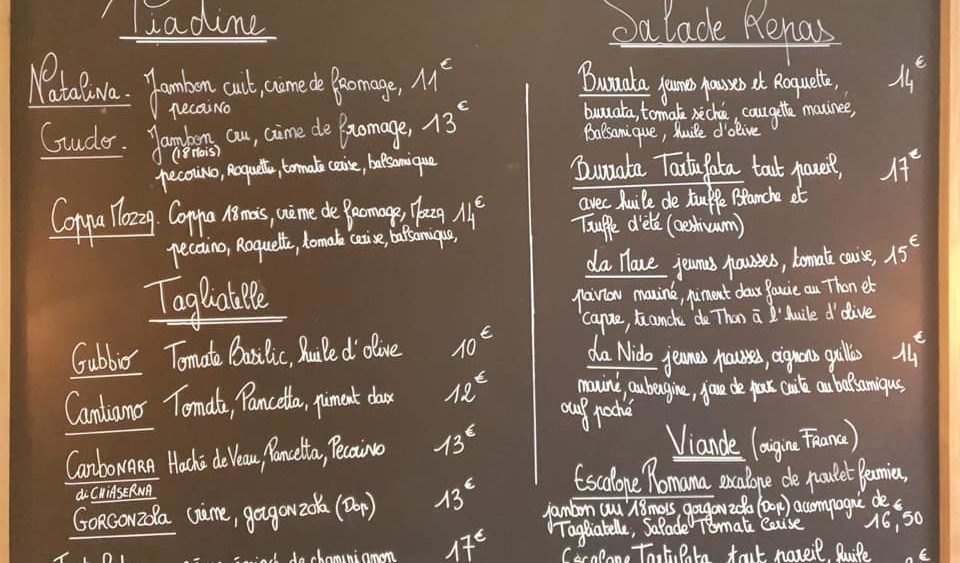 Piadine
Natalina. Jambon cuit, crème de fromage, 11€
pecorino
Guido. Jambon cru, crème de fromage, 13€
(18 mois)
pecorino, Roquette, tomate cerise, balsamique
Coppa Mozza. Coppa 18 mois, crème de fromage, Mozza 14€
pecorino, Roquette, tomate cerise, balsamique,
Tagliatelle
Gubbio Tomate Basilic, huile d'olive 10€
Cantiano Tomate, Pancetta, piment doux 12€
CarboNARA Haché de Veau, Pancetta, Pecorino 13€
di CHIASERNA
Gorgonzola crème, gorgonzola (Dop) 13€
de champignon 17€
Salade Repas
Burrata jeunes pousses et Roquette, 14€
burrata, tomate séché, courgette marineé,
Balsamique, huile d'olive
Burrata Tartufata tout pareil, 17€
avec huile de truffe Blanche et
Truffe d'été (aestivum)
La Mare jeunes pousses, tomate cerise, 15€
poivron mariné, piment doux farcie au Thon et
capre, tranche de Thon à l'huile d'olive
La Nido jeunes pousses, oignons grillés 14€
mariné, aubergine, joue de porc cuite au balsamique,
oeuf poché
Viande (origine France)
Escalope Romana escalope de poulet fermier,
jambon cru 18 mois, gorgonzola (Dop) accompagné de
Tagliatelle, Salade Tomate Cerise 16,50€
Escalope Tartufata tout pareil, huile